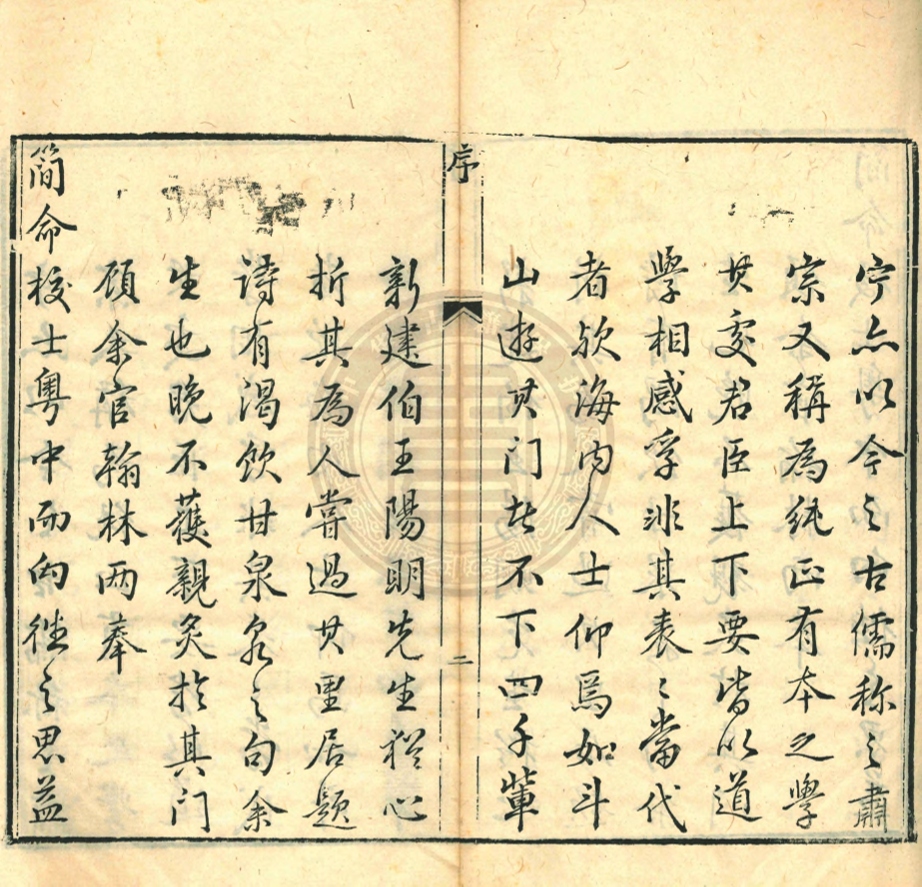 宁亦以今之古儒称之肅
宗又稱為純正有本之學
其交君臣上下要皆以道
學相感孚非其表〻當代
者欤海内人士仰焉如斗
山遊其門者不下四千輩
序
二
新建伯王陽明先生極心
折其為人嘗過其里居題
詩有渴飲甘泉泉之句余
生也晚不獲親炙於其门
顧余官翰林两奉
簡命校士粤中而向徃之思益